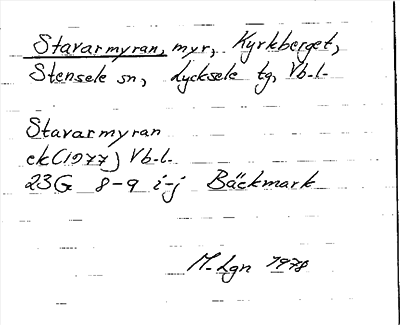 Stavarmyran, myr, Kyrkberget,
Stensele sn, Lycksele tg, Vb.l.
Stavarmyran
ek(1977) Vb.l.
23G 8-9 i-j Bäckmark
M. Lgn 1978